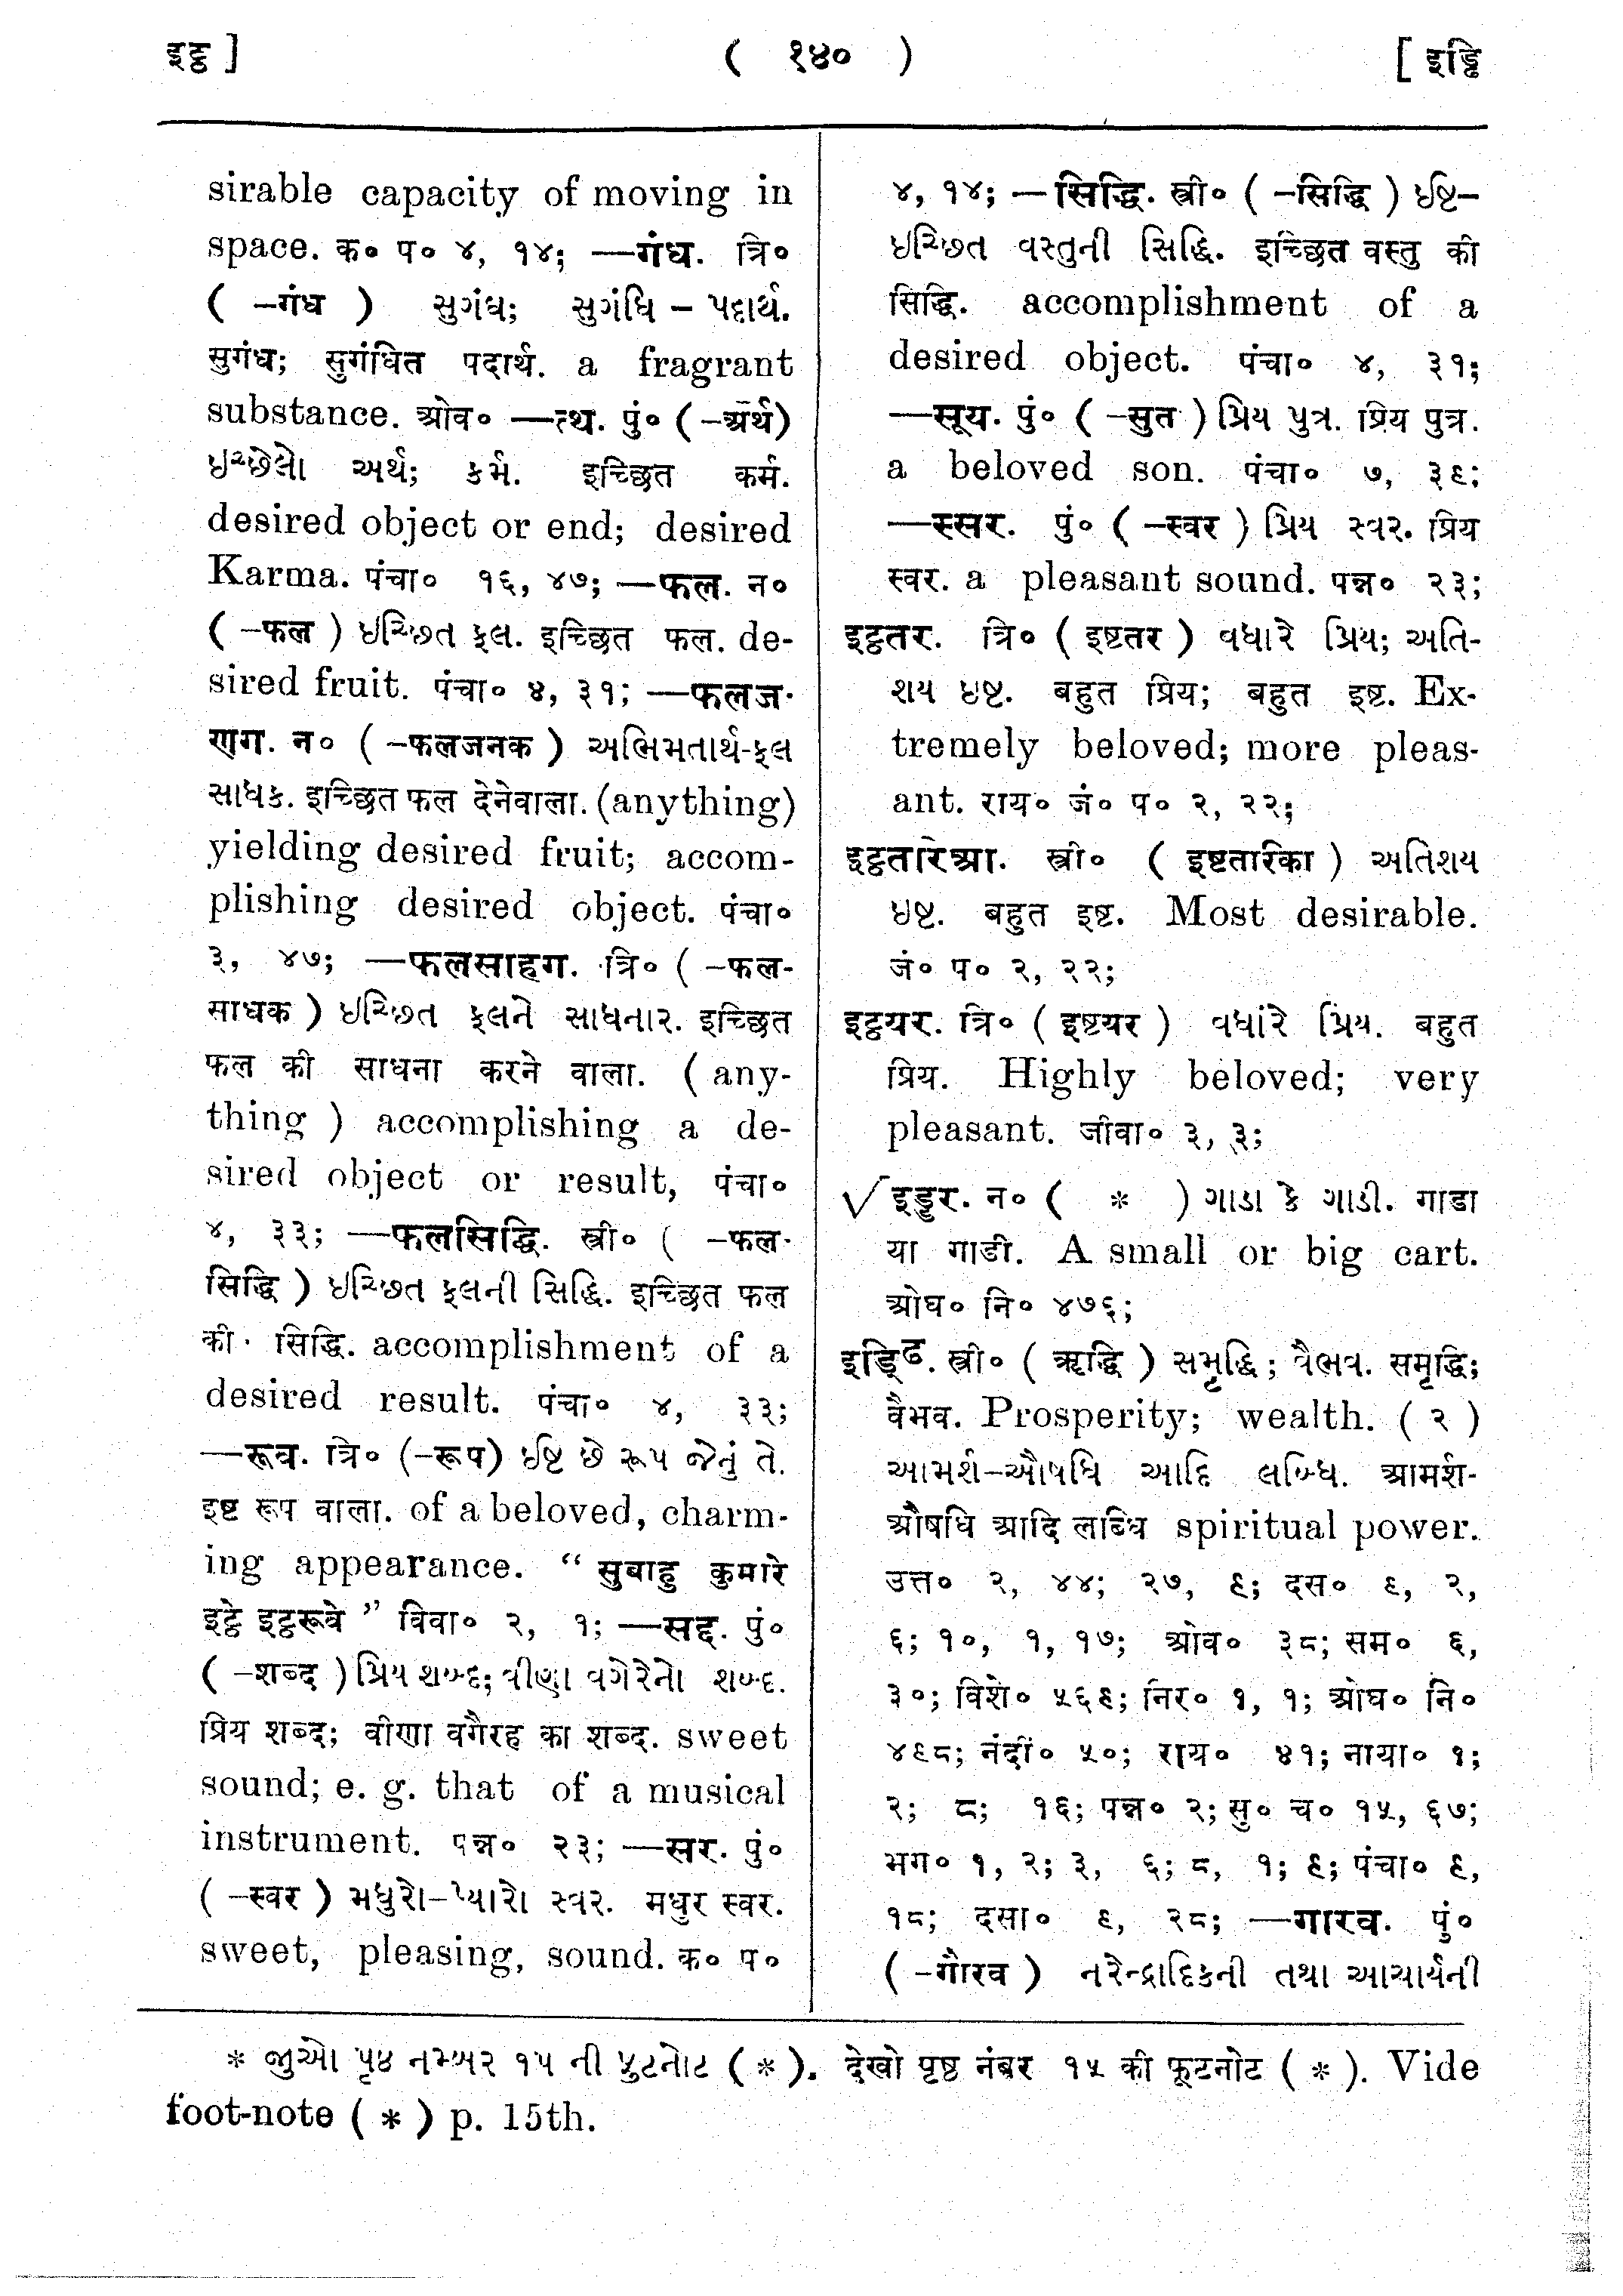 इट्ठ ] ( १४० ) [ इड्ढि
sirable capacity of moving in
space. क० प० ४, १४; —गंध. त्रि०
( –गंध ) સુગંધ; સુગંધિ – પદાર્થ.
सुगंध; सुगंधित पदार्थ. a fragrant
substance. ओव० —त्थ. पुं० ( –अर्थ)
ઇચ્છેલો અર્થ; કર્મ. इच्छित कर्म.
desired object or end; desired
Karma. पंचा० १६, ४७; —फल. न०
( –फल ) ઇચ્છિત ફલ. इच्छित फल. de-
sired fruit. पंचा० ४, ३१; —फलज-
णग. न० ( –फलजनक ) અભિમતાર્થ-ફલ
સાધક. इच्छित फल देनेवाला. (anything)
yielding desired fruit; accom-
plishing desired object. पंचा०
३, ४७; —फलसाहग. त्रि० ( –फल-
साधक ) ઇચ્છિત ફલને સાધનાર. इच्छित
फल की साधना करने वाला. ( any-
thing ) accomplishing a de-
sired object or result, पंचा०
४, ३३; —फलसिद्धि. स्त्री० ( –फल-
सिद्धि ) ઇચ્છિત ફલની સિદ્ધિ. इच्छित फल
की सिद्धि. accomplishment of a
desired result. पंचा० ४, ३३;
—रूव. त्रि० (–रूप) ઇષ્ટિ છે રૂપ જેનું તે.
इष्ट रूप वाला. of a beloved, charm-
ing appearance. “ सुबाहु कुमारे
इट्ठे इट्ठरूवे ” विवा० २, १; —सद्द. पुं०
( –शब्द ) પ્રિય શબ્દ; વીણા વગેરેનો શબ્દ.
प्रिय शब्द; वीणा वगैरह का शब्द. sweet
sound; e. g. that of a musical
instrument. पन्न० २३; —सर. पुं०
( –स्वर ) મધુરો–પ્યારો સ્વર. मधुर स्वर.
sweet, pleasing, sound. क० प०
४, १४; —सिद्धि. स्त्री० ( –सिद्धि ) ઇષ્ટિ–
ઇચ્છિત વસ્તુની સિદ્ધિ. इच्छित वस्तु की
सिद्धि. accomplishment of a
desired object. पंचा० ४, ३१;
—सूय. पुं० ( –सुत ) પ્રિય પુત્ર. प्रिय पुत्र.
a beloved son. पंचा० ७, ३६;
—स्सर. पुं० ( –स्वर ) પ્રિય સ્વર. प्रिय
स्वर. a pleasant sound. पन्न० २३;
इट्ठतर. त्रि० ( इष्टतर ) વધારે પ્રિય; અતિ-
શય ઇષ્ટ. बहुत प्रिय; बहुत इष्ट. Ex-
tremely beloved; more pleas-
ant. राय० जं० प० २, २२;
इट्ठतारिआ. स्त्री० ( इष्टतारिका ) અતિશય
ઇષ્ટ. बहुत इष्ट. Most desirable.
जं० प० २, २२;
इट्ठयर. त्रि० ( इष्टयर ) વધારે પ્રિય. बहुत
प्रिय. Highly beloved; very
pleasant. जीवा० ३, ३;
√ इड्डर. न० ( * ) ગાડા કે ગાડી. गाडा
या गाडी. A small or big cart.
ओघ० नि० ४७६;
इड्ढि. स्त्री० ( ऋद्धि ) સમૃદ્ધિ; વૈભવ. समृद्धि;
वैभव. Prosperity; wealth. ( २ )
આમર્શ–ઔષધિ આદિ લબ્ધિ. आमर्श-
औषधि आदि लब्धि spiritual power.
उत्त० २, ४४; २७, ९; दस० ९, २,
६; १०, १, १७; ओव० ३८; सम० ६,
३०; विशे० ५६९; निर० १, १; ओघ० नि०
४९८; नंदी० ५०; राय० ४१; नाया० १;
२; ८; १६; पन्न० २; सु० च० १५, ६७;
भग० १, २; ३, ६; ८, १; ९; पंचा० ९,
१८; दसा० ९, २८; —गारव. पुं०
( –गौरव ) નરેન્દ્રાદિકની તથા આચાર્યની
* જુઓ પૃષ્ઠ નમ્બર ૧૫ ની ફુટનોટ ( * ). देखो पृष्ठ नंबर १५ की फूटनोट ( * ). Vide
foot-note ( * ) p. 15th.